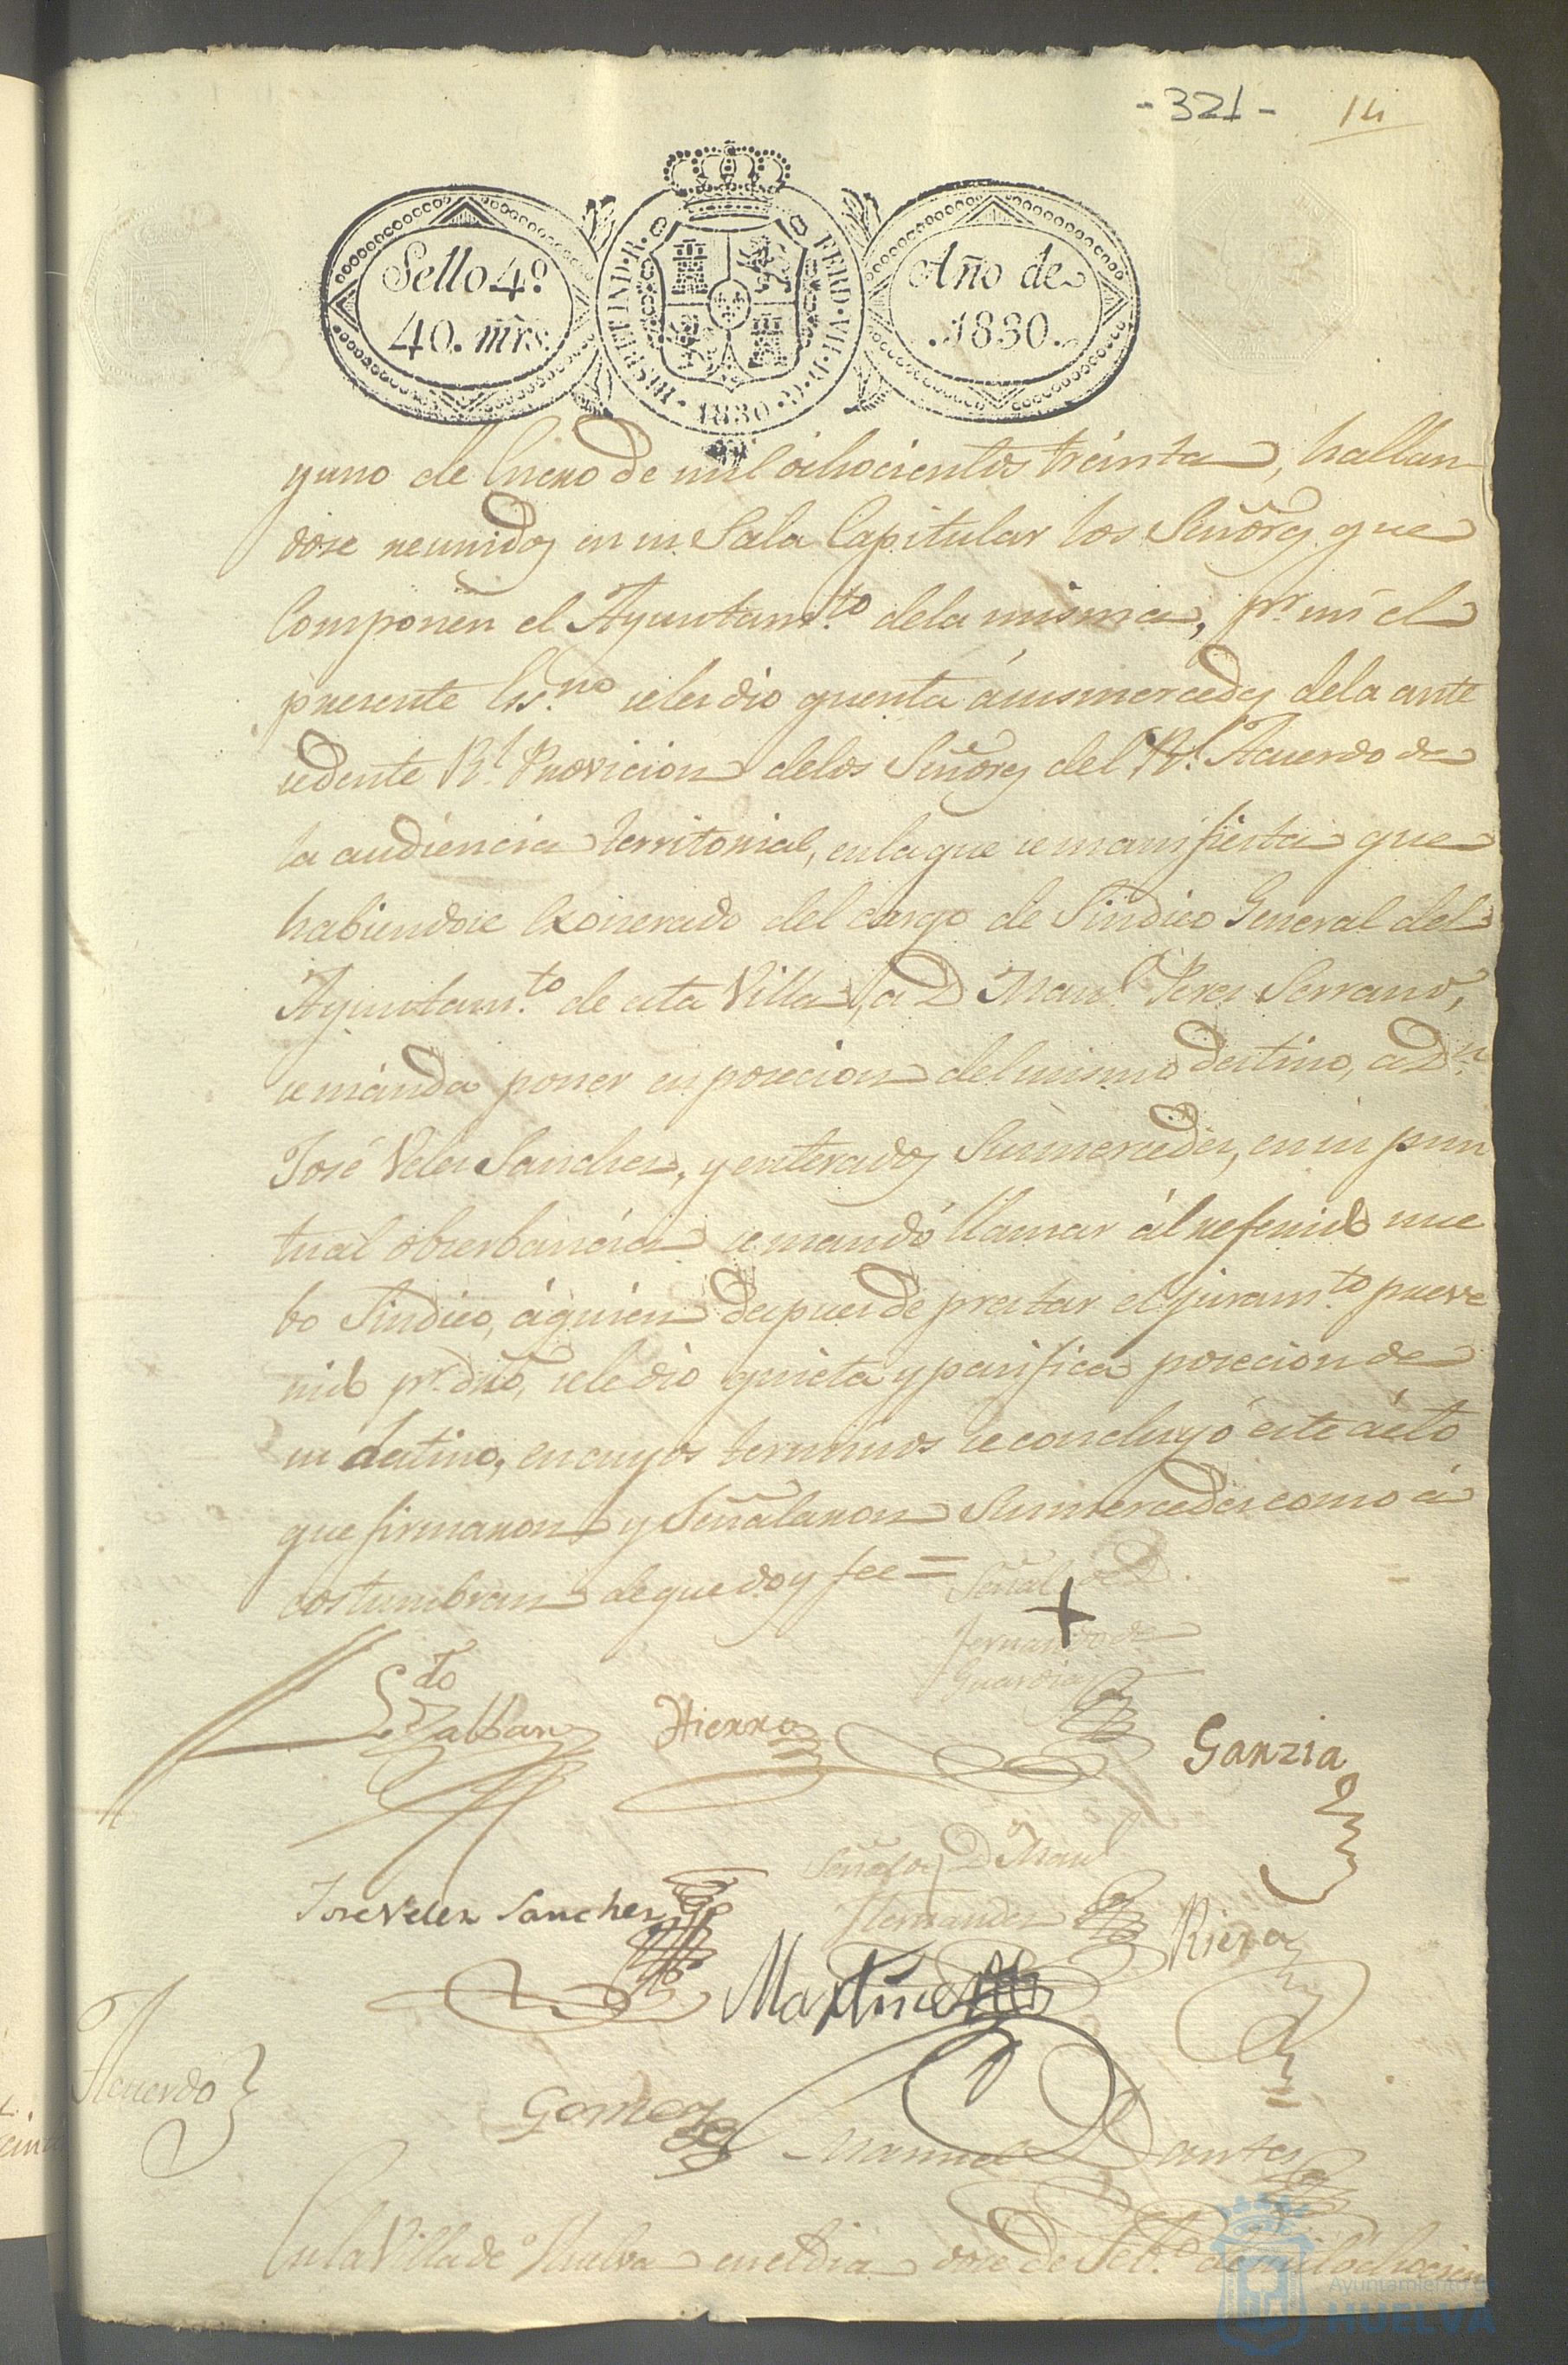 -321- 14
Sello 4º
40. mrs.
HISP. ET IND. R. FERD. VII. D. G. 1830
Año de
.1830.
y uno de Enero de mil ochocientos treinta, hallan
dose reunidos en su Sala Capitular los Señores que
Componen el Ayuntam.to de la misma, p.r mi el
presente Es.no se les dio quenta á susmercedes de la ante
cedente R.l Provicion de los Señores del R.l Acuerdo de
la audiencia territorial, en la que se manifiesta que
habiendose Exonerado del cargo de Sindico General del
Ayuntam.to de esta Villa, a D Man.l Peres Serrano,
se mánda poner en posecion del mismo destino, a D.n
José Veles Sanches, y enterados Susmercedes, en su pun
tual obserbancia se mandó llamar al referido nue
bo Sindico, á quien despues de prestar el juram.to preve
nido p.r dro, se le dio quieta y pasifica posecion de
su destino, en cuyos terminos se concluyó este ácto
que firmaron y Señalaron Susmercedes como á
costumbran de que doy fee =
Señal de D.
Fernando de
Guardia
L.do Zalban
Hierro
Garzia
Jose Veler Sancher
Señal de D Man.l
Hernandez
Riera
Martinez
Gomez
Manuel Dantes
Acuerdo
En la Villa de Huelva en el dia dose de Feb.o de mil ochocien
Ayuntamiento de
HUELVA